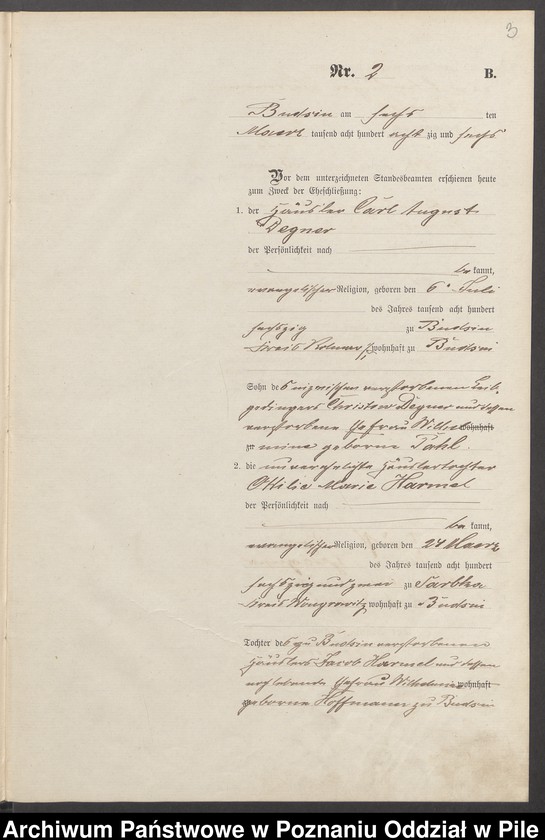 3
Nr. 2 B.
Budsin am sechs ten
Maerz tausend acht hundert acht zig und sechs
Vor dem unterzeichneten Standesbeamten erschienen heute
zum Zweck der Eheschließung:
1. der Häusler Carl August
Degner
der Persönlichkeit nach
be kannt,
evangelischer Religion, geboren den 6. Juli
des Jahres tausend acht hundert
sechszig zu Budsin
Kreis Kolmar wohnhaft zu Budsin
Sohn des verstorbenen Leib-
gedingers Christow Degner und dessen
verstorbene Ehefrau Wilhel wohnhaft
zu mine geborne Pahl
2. die unverehelichte Häuslertochter
Ottilie Marie Harmel
der Persönlichkeit nach
be kannt,
evangelischer Religion, geboren den 24 Maerz
des Jahres tausend acht hundert
sechszig und zwei zu Sarbka
Kreis Wongrowitz wohnhaft zu Budsin
Tochter des zu Budsin verstorbenen
Häuslers Jacob Harmel und dessen
noch lebende Ehefrau Wilhelmine wohnhaft
geborne Hoffmann zu Budsin
Archiwum Państwowe w Poznaniu Oddział w Pile